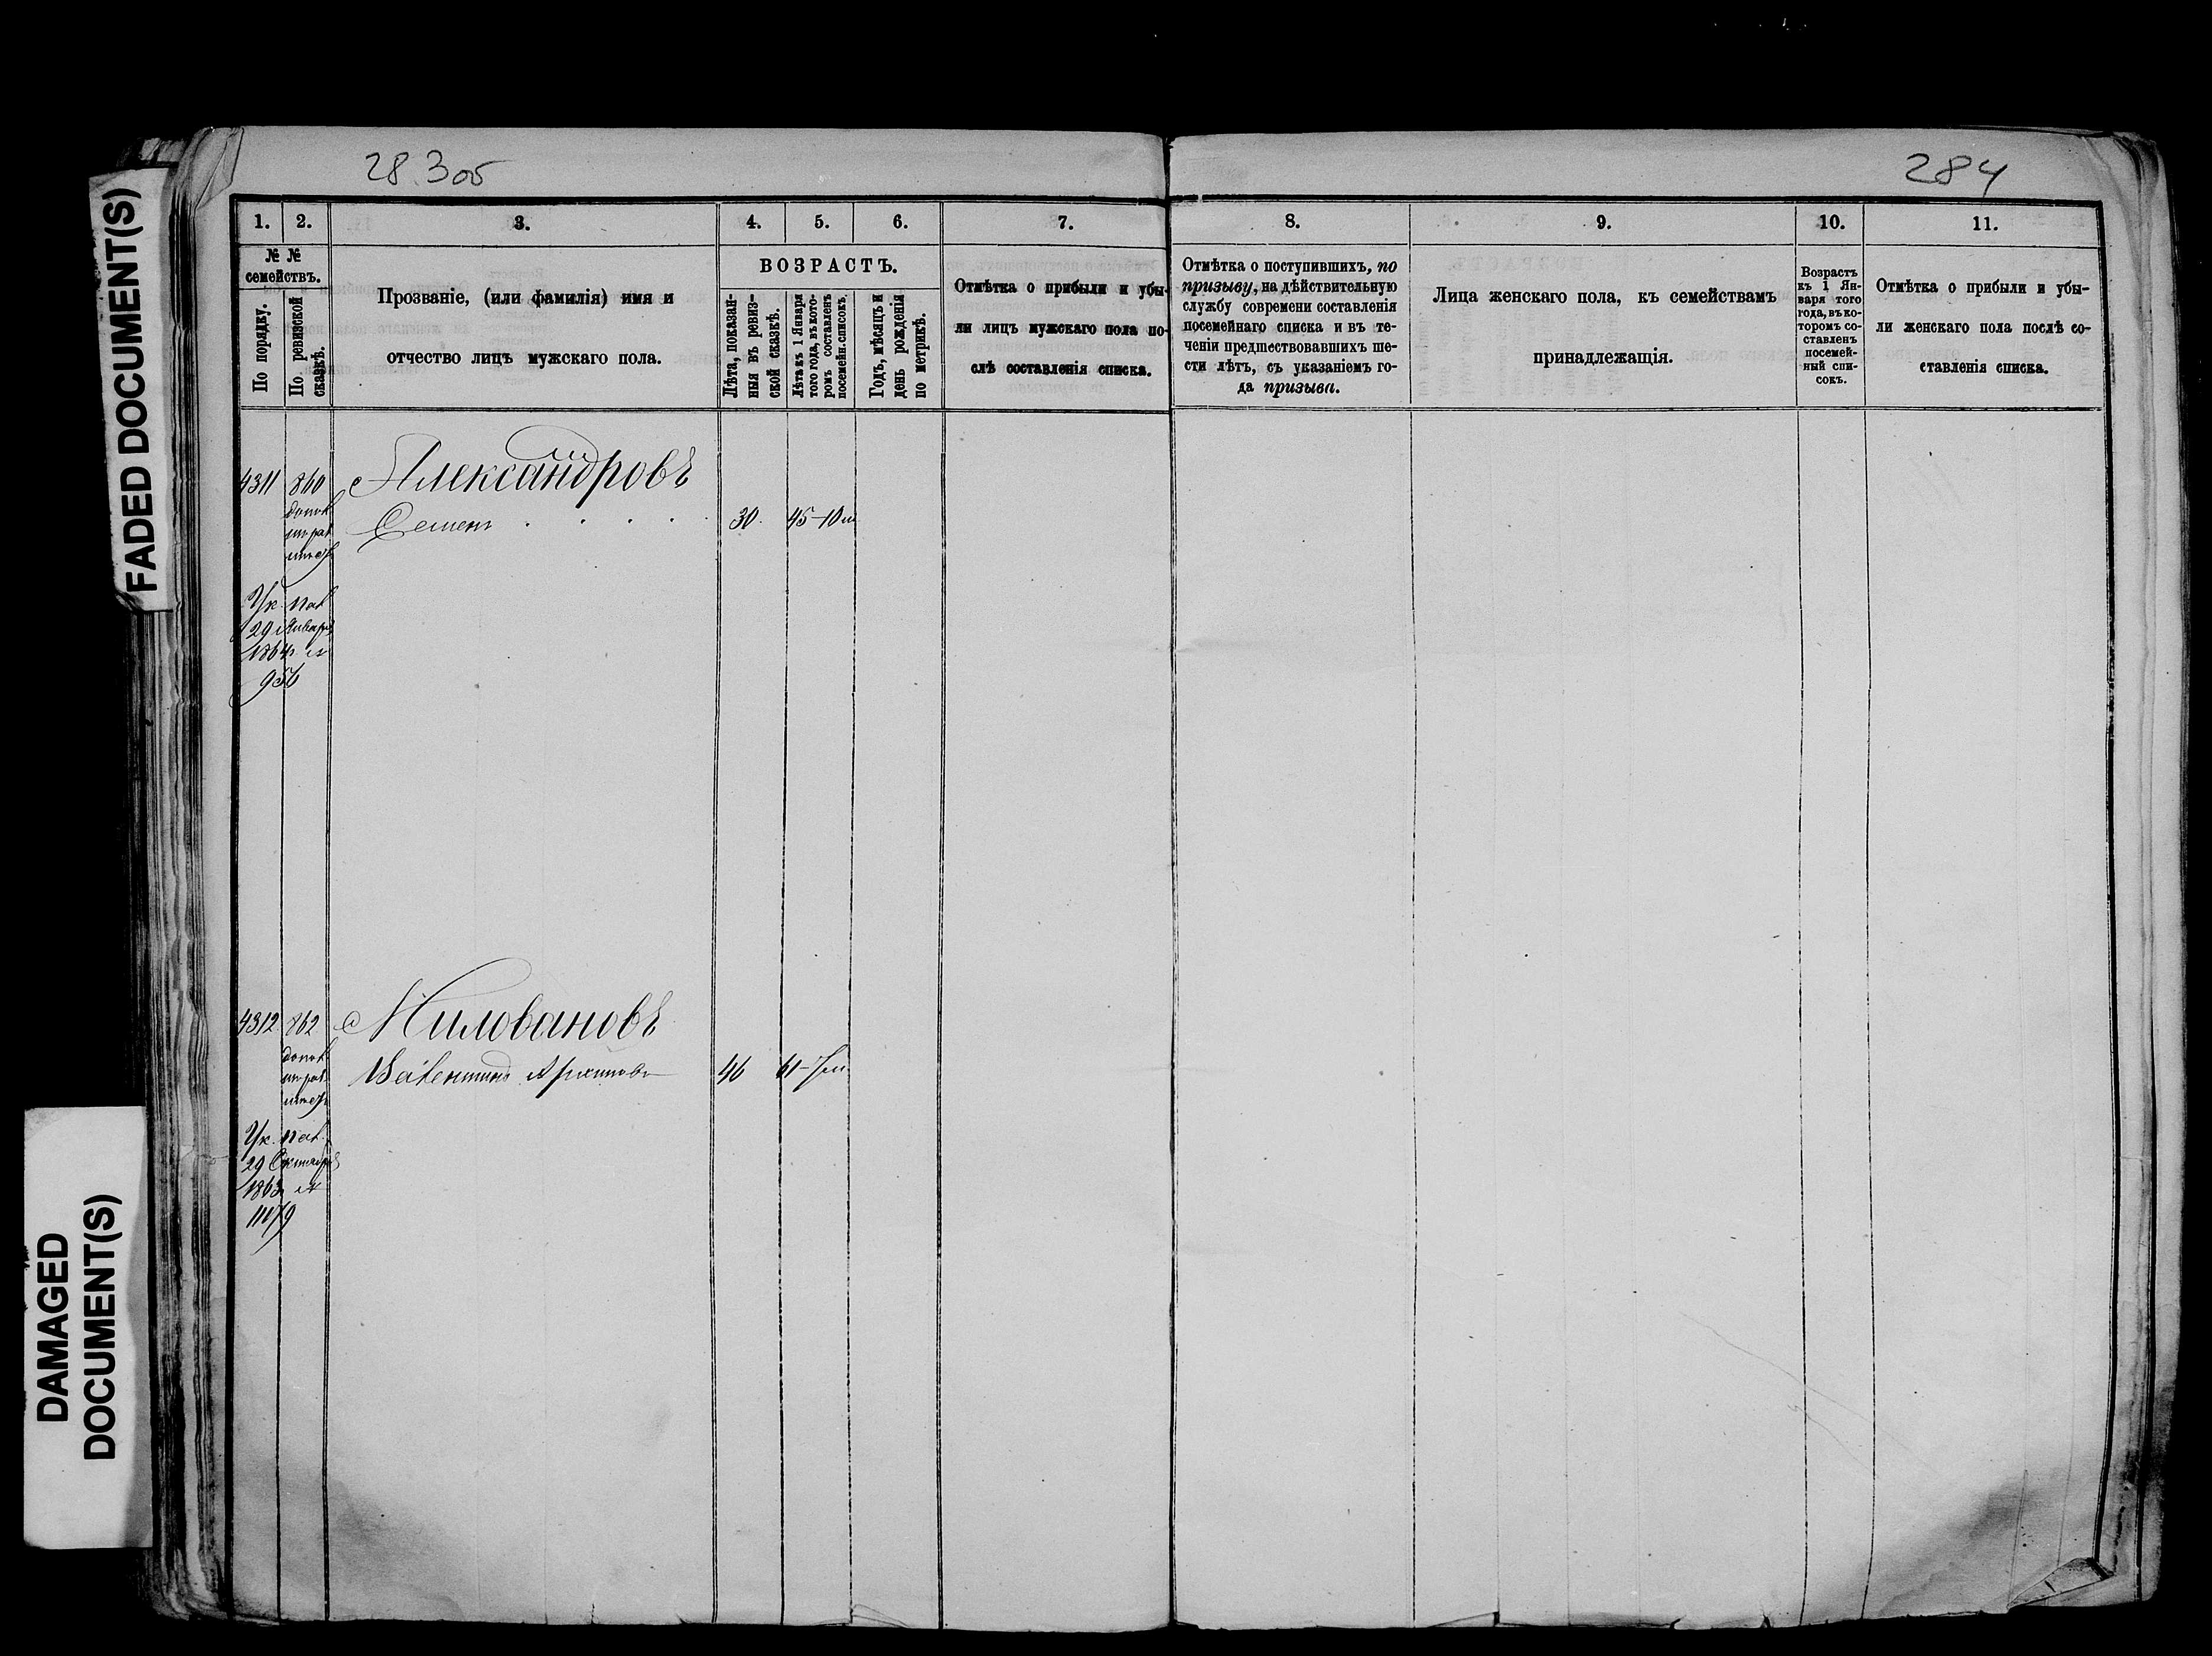 28 3 об
284
FADED DOCUMENT(S)
DAMAGED
DOCUMENT(S)
1. 2. 3. 4. 5. 6. 7. 8. 9. 10. 11.
№ №
семействъ.
По порядку.
По ревизской
сказкѣ.
Прозваніе, (или фамилія) имя и
отчество лицъ мужскаго пола.
ВОЗРАСТЪ.
Лѣта, показан-
ныя въ ревиз-
ской сказкѣ.
Лѣта къ 1 Января
того года, въ кото-
ромъ составленъ
посемейн. списокъ.
Годъ, мѣсяцъ и
день рожденія
по метрикѣ.
Отмѣтка о прибыли и убы-
ли лицъ мужскаго пола по-
слѣ составленія списка.
Отмѣтка о поступившихъ, по
призыву, на дѣйствительную
службу современи составленія
посемейнаго списка и въ те-
ченіи предшествовавшихъ ше-
сти лѣтъ, съ указаніемъ го-
да призыва.
Лица женскаго пола, къ семействамъ
принадлежащія.
Возрастъ
къ 1 Ян-
варя того
года, въ ко-
торомъ со-
ставленъ
посемей-
ный спи-
сокъ.
Отмѣтка о прибыли и убы-
ли женскаго пола послѣ со-
ставленія списка.
4311 860 Александровъ
Семенъ 30. 45-10 м
Ук. пал
29 Января
1864 г. №
956
4312 862 Миловановъ
Валентинъ Архиповъ 46 61-7 м
Ук. пал.
29 Октября
1863 №
11179